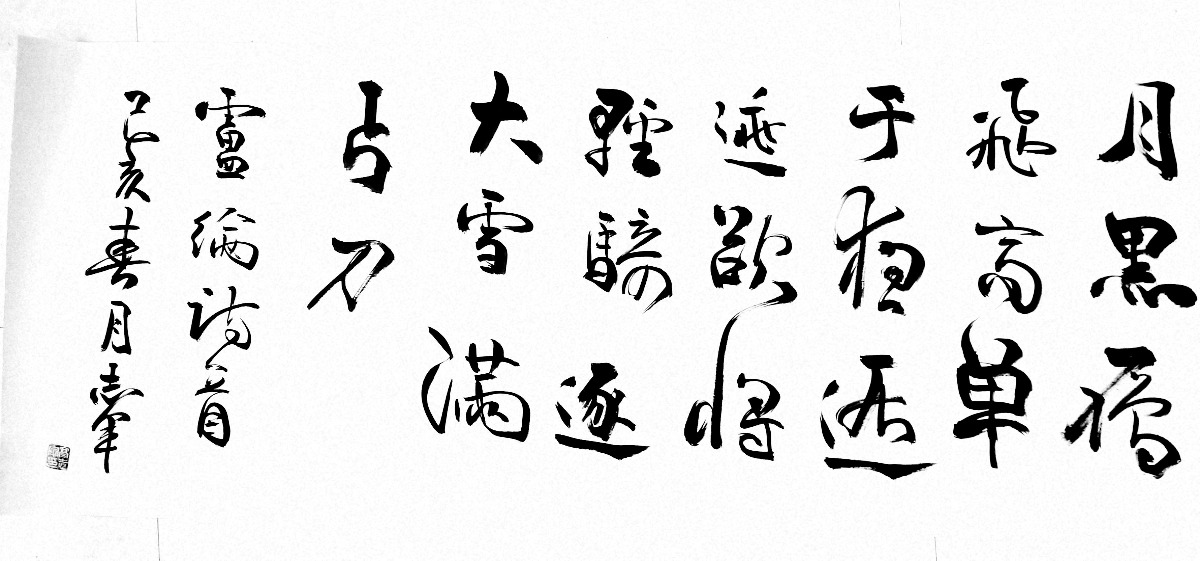 月黑雁
飛高單
于夜遁
逃欲將
輕騎逐
大雪滿
弓刀
盧綸詩一首
己亥春月志